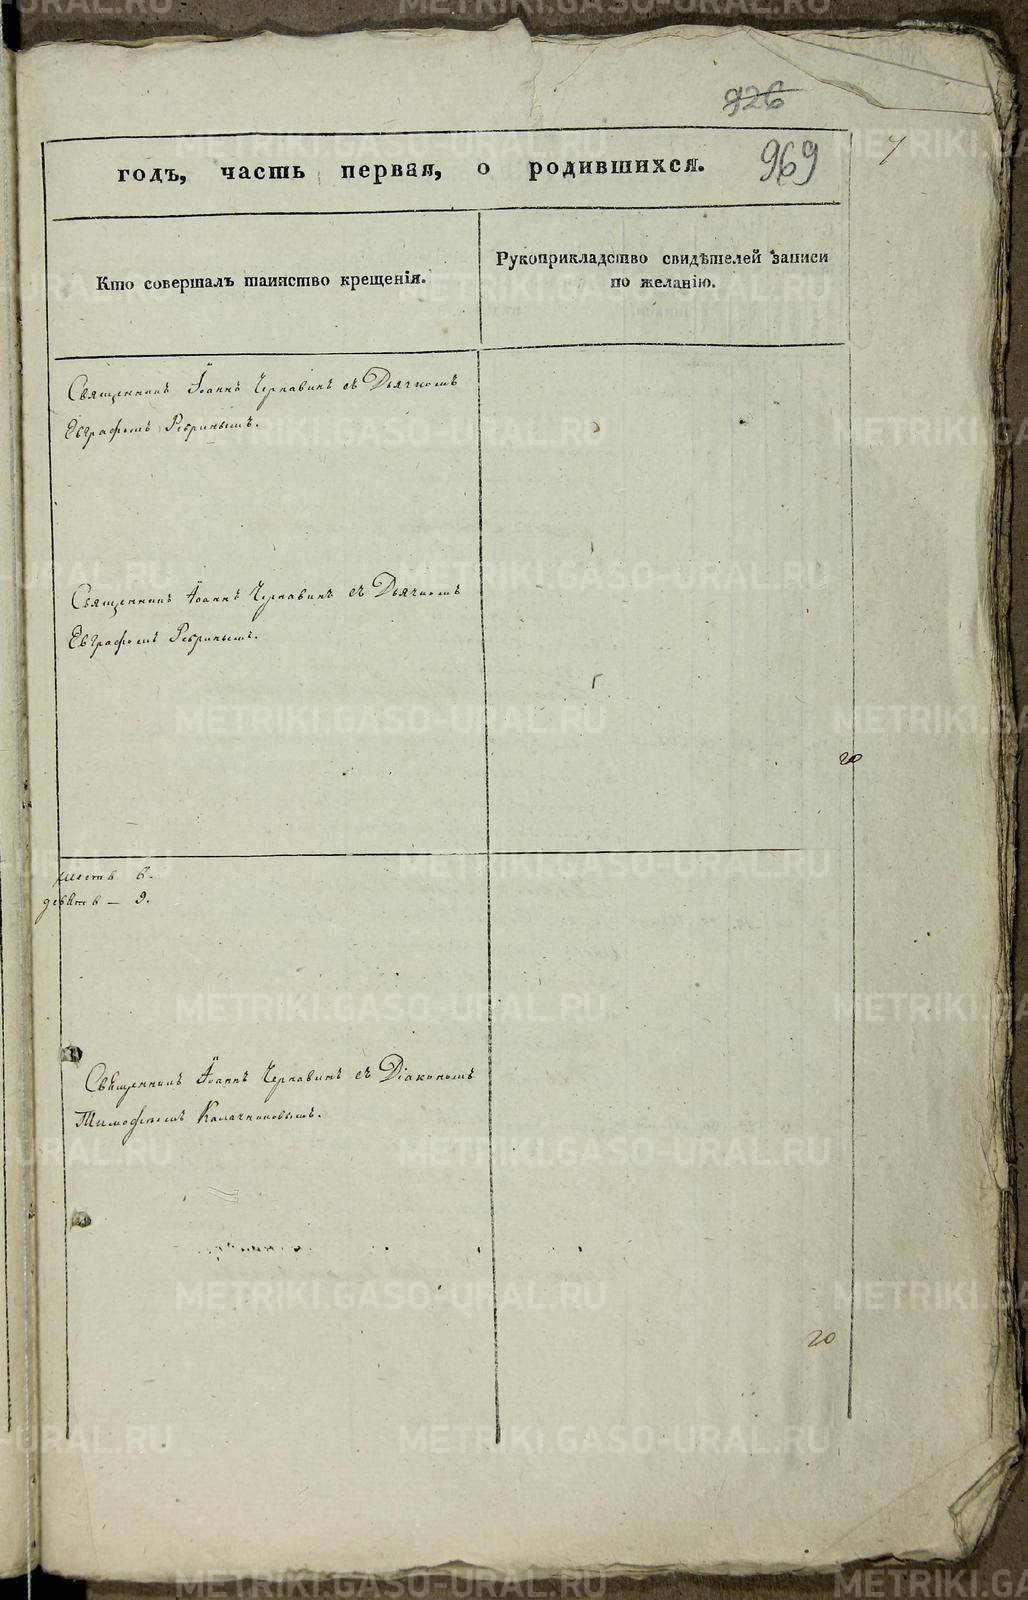 926
969
7
годъ, часть первая, о родившихся.
Кто совершалъ таинство крещенія.
Рукоприкладство свидѣтелей записи
по желанію.
Священникъ Іоаннъ Чернавинъ съ Дьячкомъ
Евграфомъ Ребринымъ.
Священникъ Іоаннъ Чернавинъ съ Дьячкомъ
Евграфомъ Ребринымъ.
20
шесть 6.
девять — 9.
Священникъ Іоаннъ Чернавинъ съ Діакономъ
Тимофеемъ Калачниковымъ.
20
METRIKI.GASO-URAL.RU